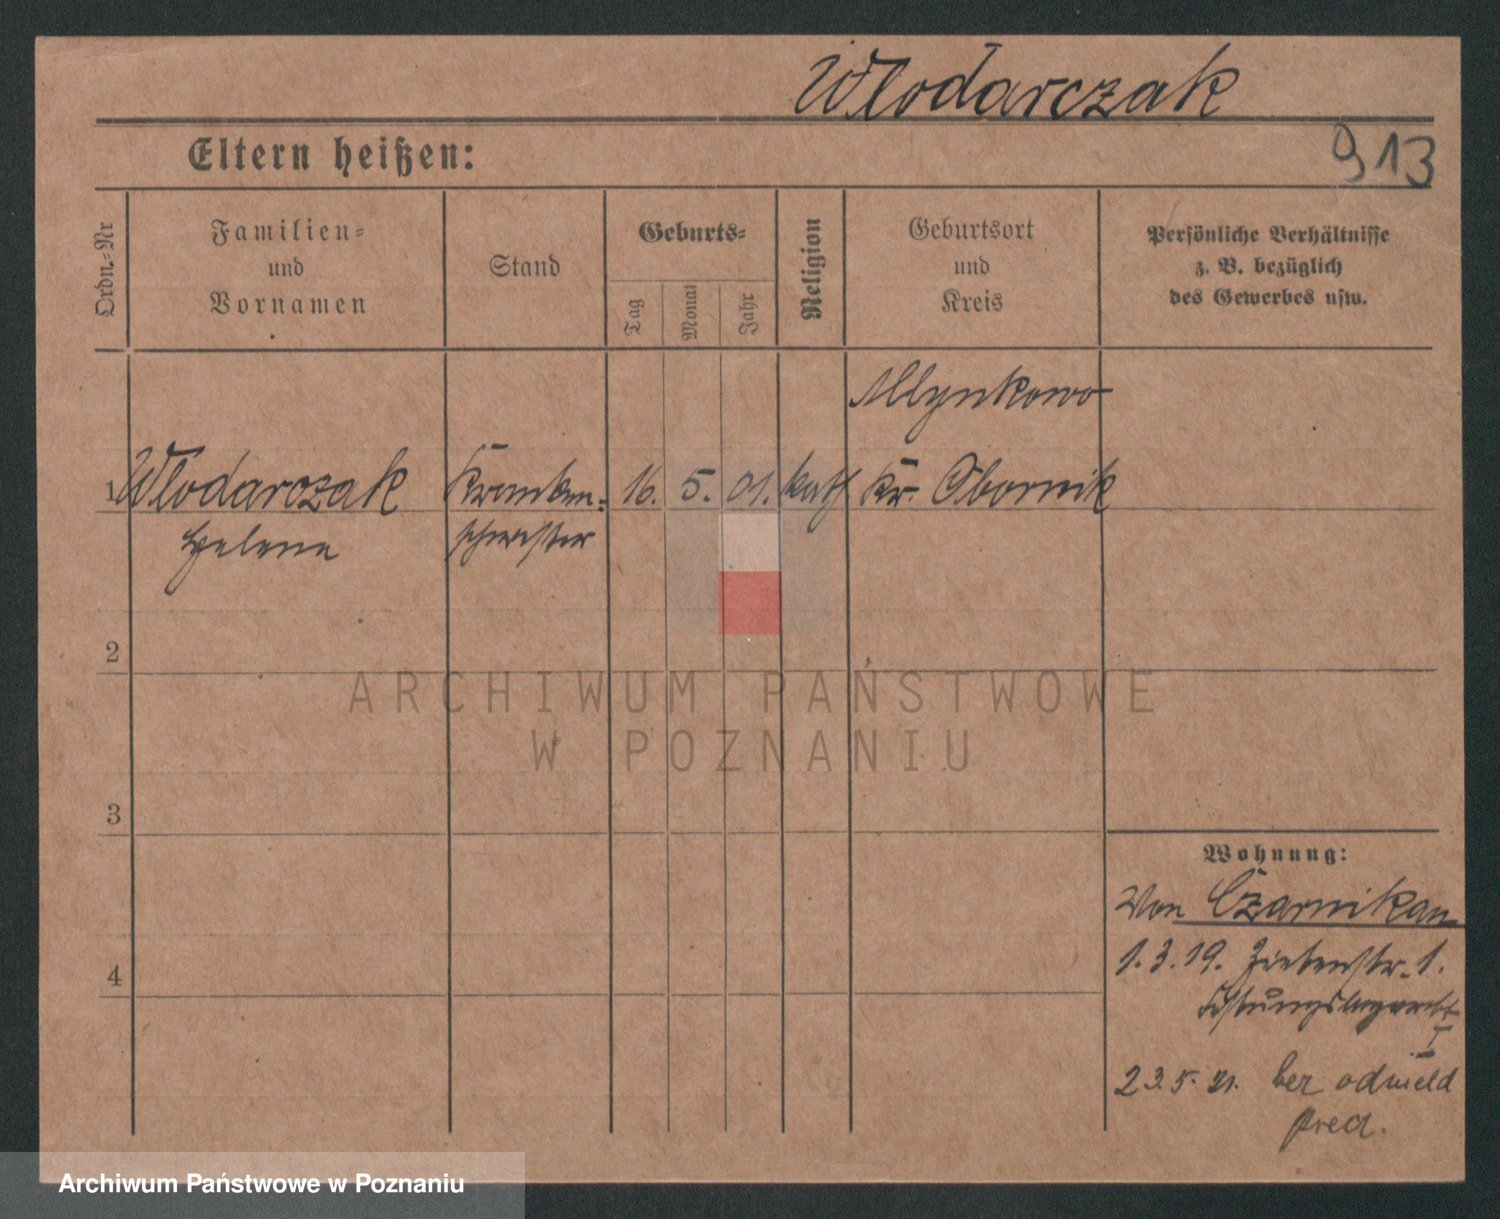 Wlodarczak
Eltern heißen:
913
Ordn.-Nr
Familien-
und
Vornamen
Stand
Geburts-
Tag
Monat
Jahr
Religion
Geburtsort
und
Kreis
Persönliche Verhältnisse
z. B. bezüglich
des Gewerbes usw.
Mlynkowo
1 Wlodarczak Kranken- 16. 5. 01. kath Kr. Obornik
Helene schwester
2
3
4
Wohnung:
Von Czarnikau
1.3.19. Zietenstr. 1.
Festungslazarett
I
23.5.21. bez odmeld
ARCHIWUM PAŃSTWOWE
W POZNANIU
Archiwum Państwowe w Poznaniu